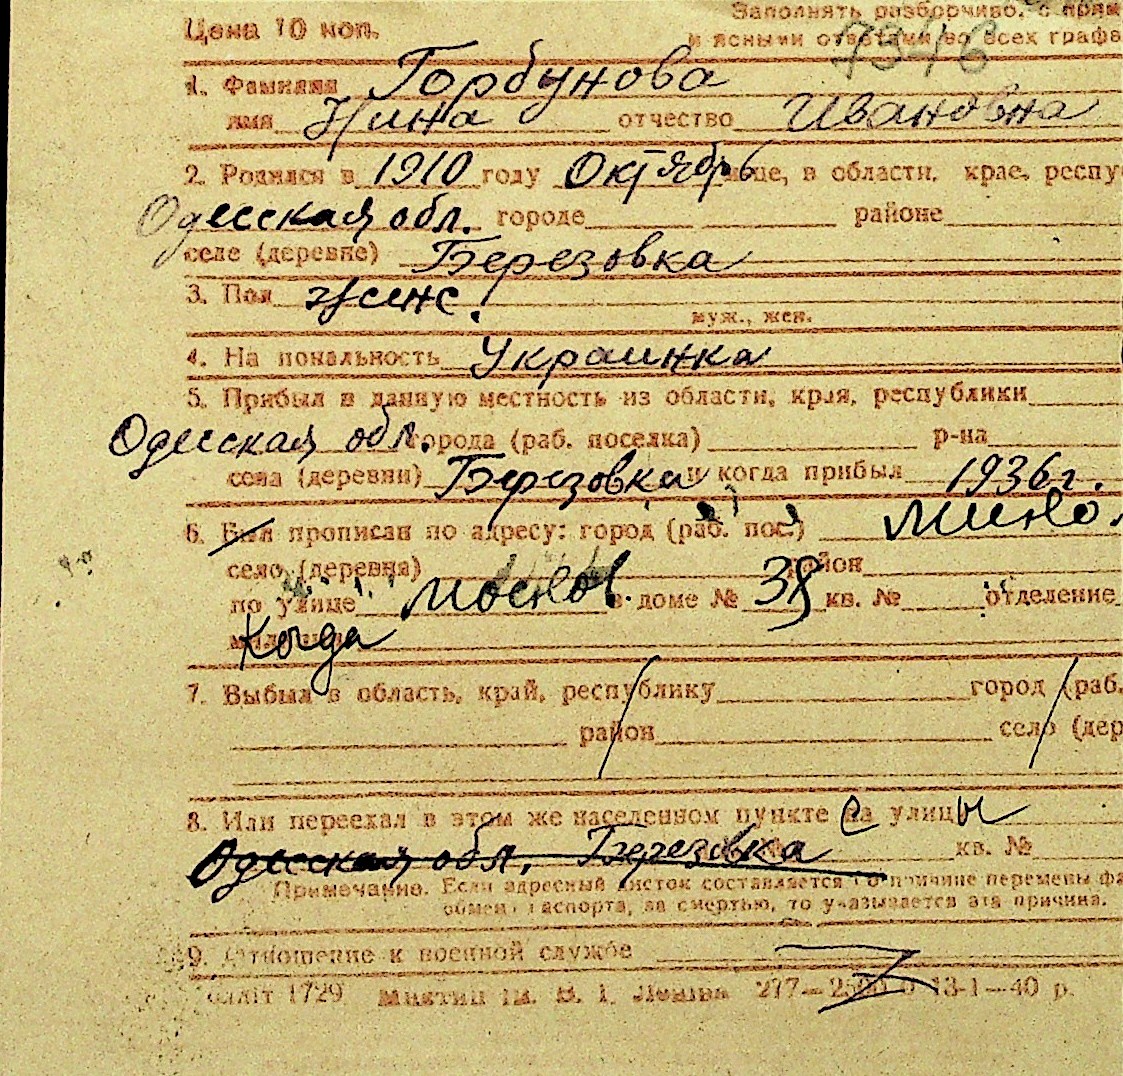 Цена 10 коп.
Заполнять разборчиво, с
и ясными ответами во всех
7346
1. Фамилия Горбунова
имя Нина отчество Ивановна
2. Родился в 1910 году Октябрь в области, крае, респу
Одесская обл. городе районе
селе (деревне) Березовка
3. Пол женс.
муж., жен.
4. На пональность Украинка
5. Прибыл в данную местность из области, края, республики
Одесская обл. города (раб. поселка) р-на
села (деревни) Березовка и когда прибыл 1936 г.
6. Был прописан по адресу: город (раб. пос.)
село (деревня) район
по улице в доме № 38 кв. № отделение
Когда
7. Выбыл в область, край, республику город (раб.
район село (дер
8. Или переехал в этом же населенном пункте с улицы
Одесская обл, Березовка кв. №
Примечание. Если адресный листок составляется по причине перемены
обмен паспорта, за смертью, то указывается эта причина.
9. Отношение к военной службе
1729 Ленiна 277— 13-1—40 р.